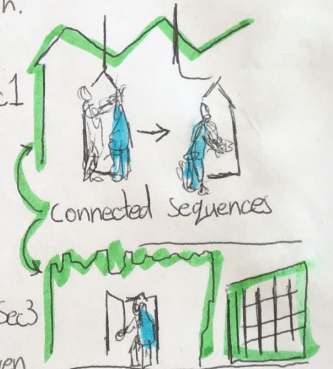 h.
c1
Connected Sequences
Sec3
en